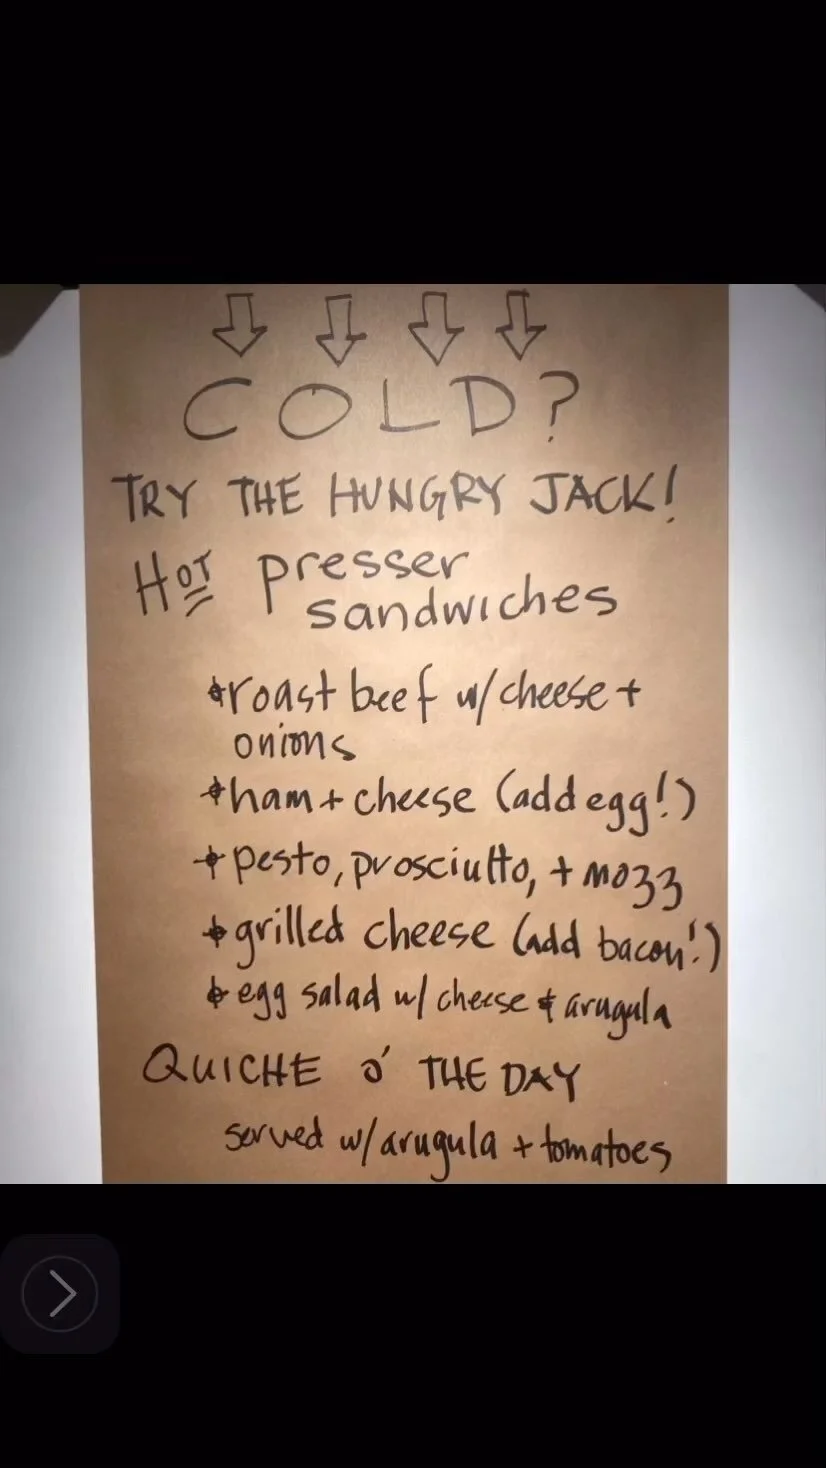 COLD?
TRY THE HUNGRY JACK!
HOT presser
sandwiches
roast beef w/cheese +
onions
ham + cheese (add egg!)
pesto, prosciutto, + mozz
grilled cheese (add bacon!)
egg salad w/ cheese & arugula
QUICHE O' THE DAY
served w/arugula + tomatoes